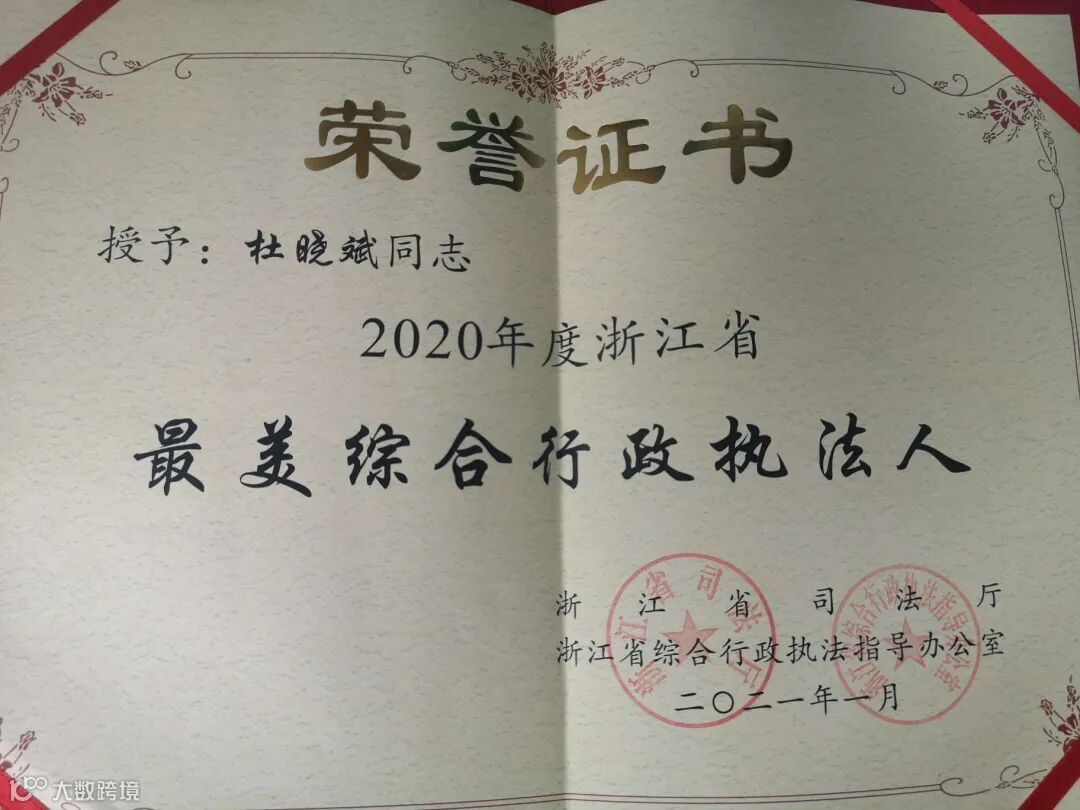 荣誉证书
授予：杜晓斌同志
2020年度浙江省
最美综合行政执法人
浙江省司法厅
浙江省综合行政执法指导办公室
二〇二一年一月
浙江省司法厅
浙江省综合行政执法指导办公室
大数跨境